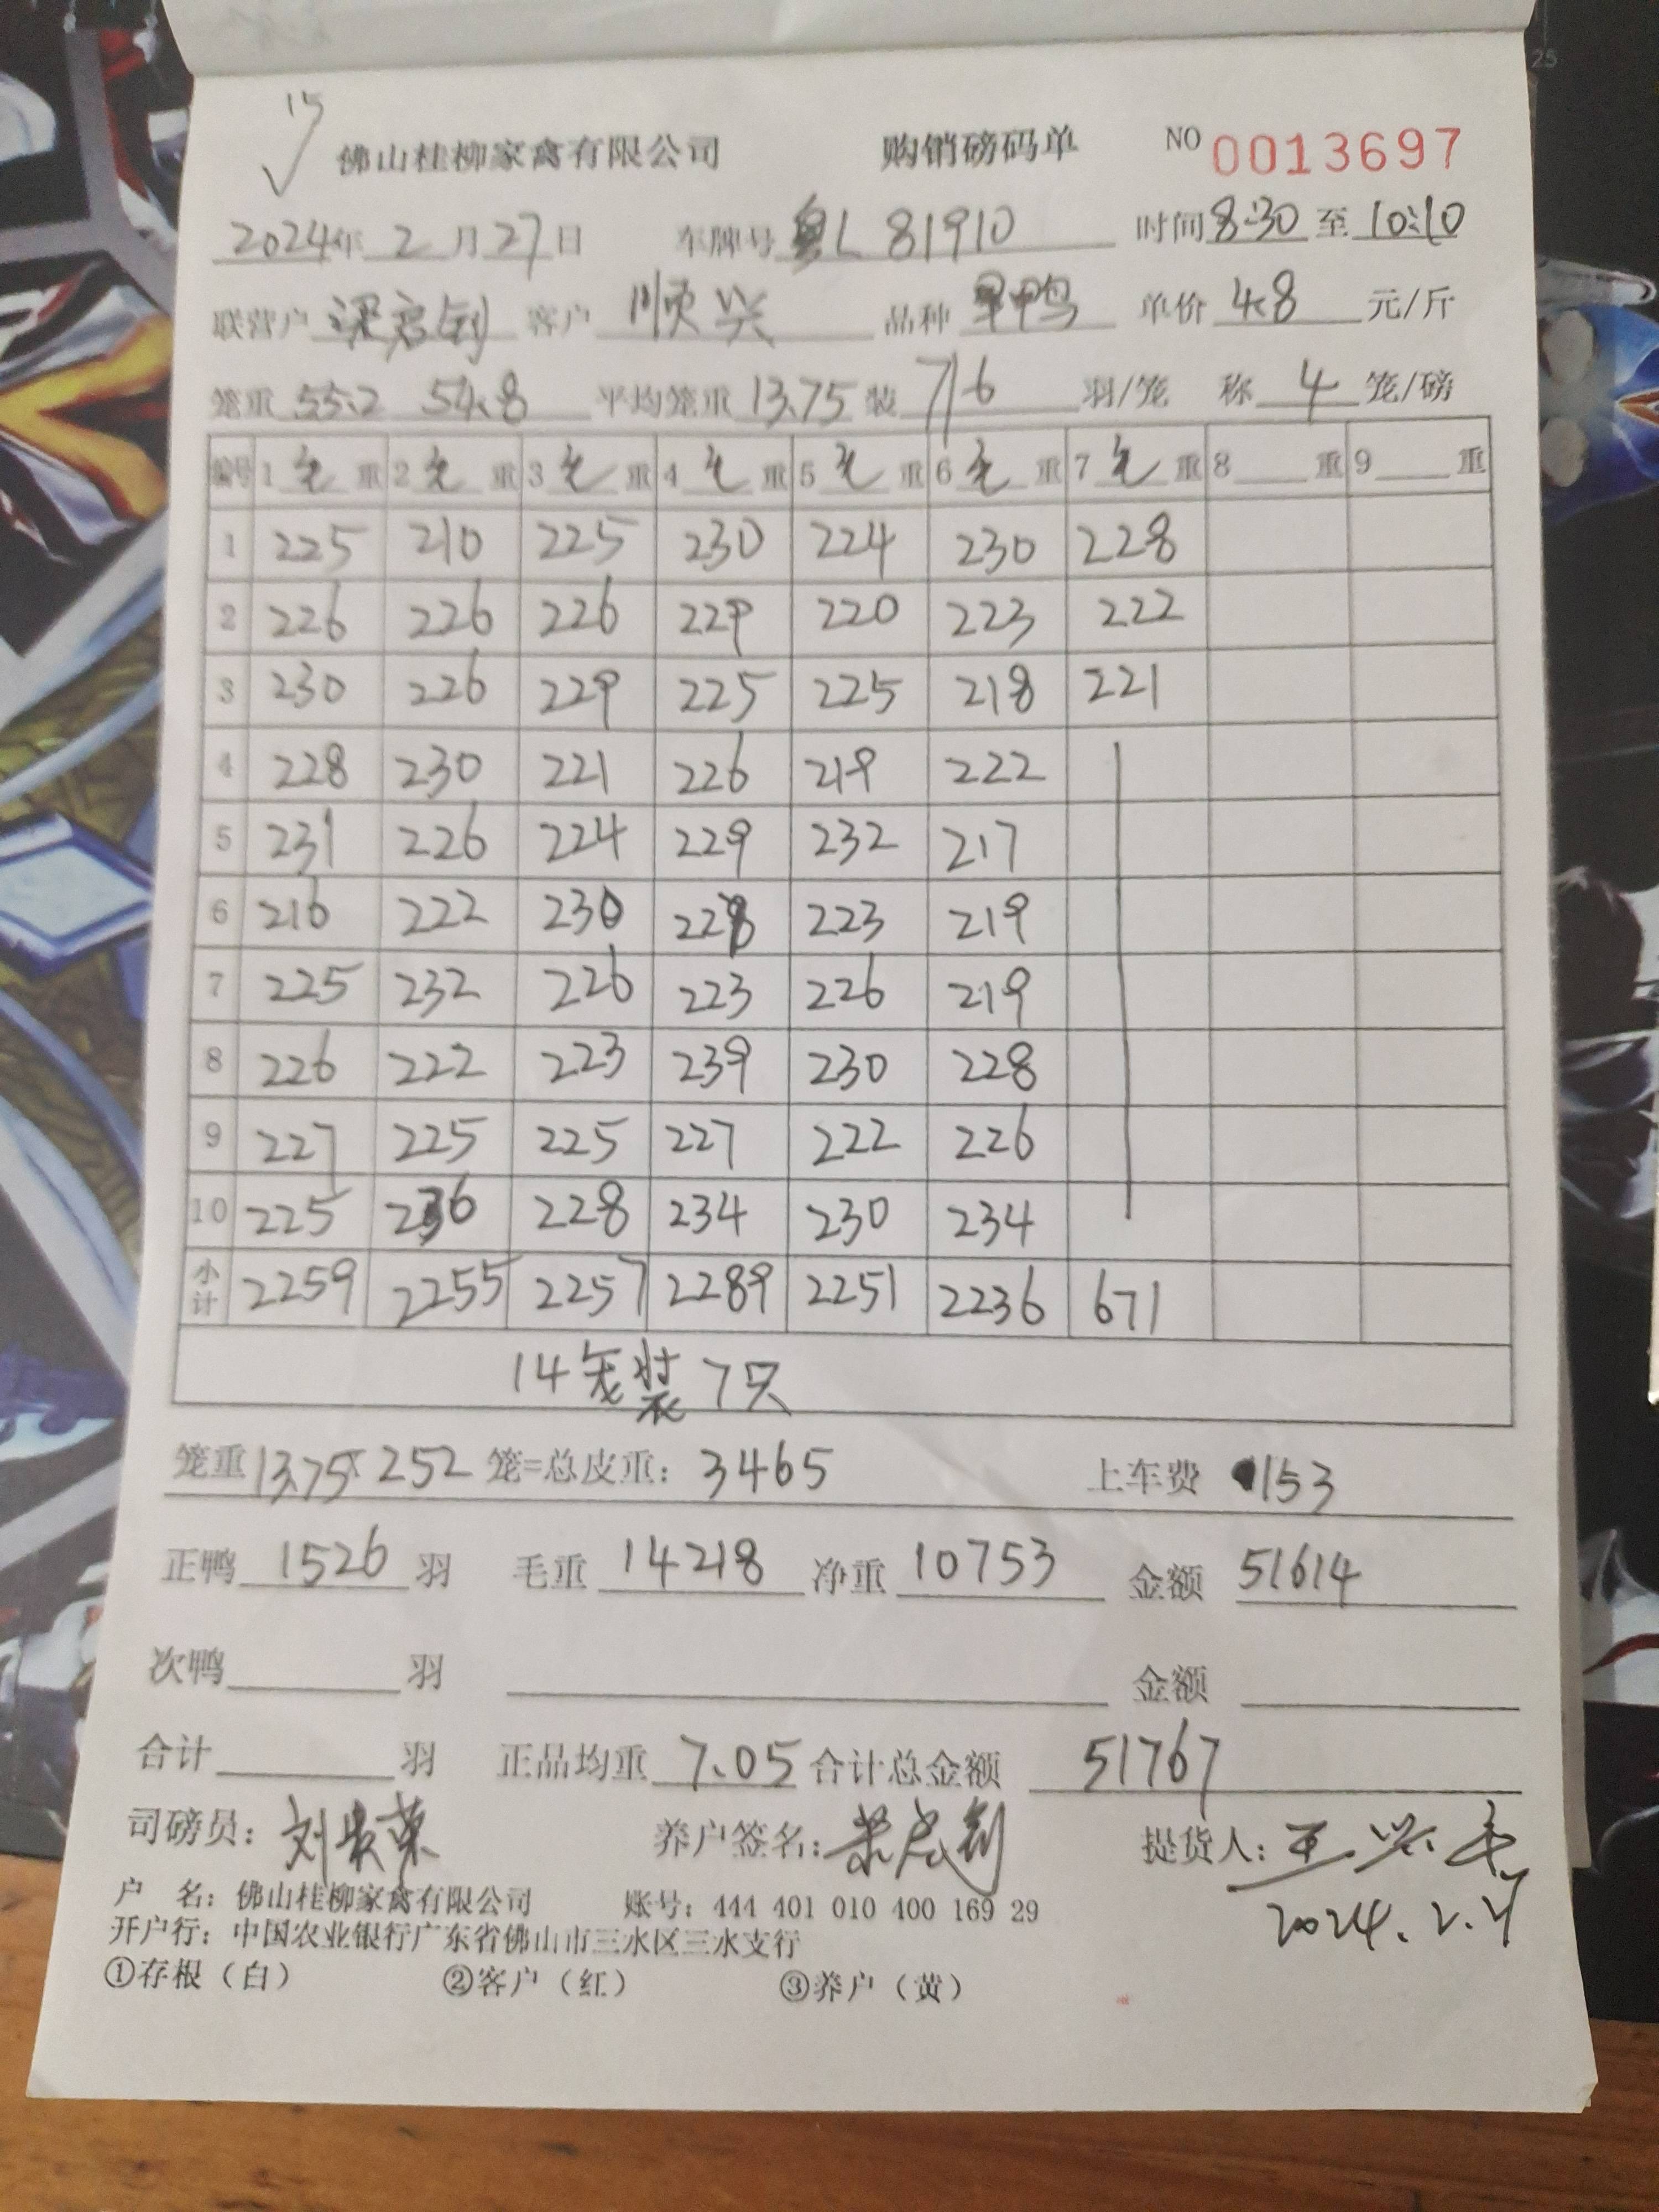 15
佛山桂柳家禽有限公司 购销磅码单 NO 0013697
2024年 2月27日 车牌号 粤L 81910 时间 8:30 至 10:10
联营户 客户 顺兴 品种 旱鸭 单价 4.8 元/斤
笼重 55.2 54.8 平均笼重 13.75 装 7/6 羽/笼 称 4 笼/磅
编号 1 毛 重 2 毛 重 3 毛 重 4 毛 重 5 毛 重 6 毛 重 7 毛 重 8 重 9 重
1 225 210 225 230 224 230 228
2 226 226 226 229 220 223 222
3 230 226 229 225 225 218 221
4 228 230 221 226 219 222
5 231 226 224 229 232 217
6 216 222 230 228 223 219
7 225 232 226 223 226 219
8 226 222 223 239 230 228
9 227 225 225 227 222 226
10 225 236 228 234 230 234
小计 2259 2255 2257 2289 2251 2236 671
14笼装 7只
笼重 13.75 × 252 笼=总皮重: 3465 上车费 153
正鸭 1526 羽 毛重 14218 净重 10753 金额 51614
次鸭 羽 金额
合计 羽 正品均重 7.05 合计总金额 51767
司磅员: 养户签名: 提货人:
户 名: 佛山桂柳家禽有限公司 账号: 444 401 010 400 169 29
开户行: 中国农业银行广东省佛山市三水区三水支行 2024.2.27
①存根(白) ②客户(红) ③养户(黄)